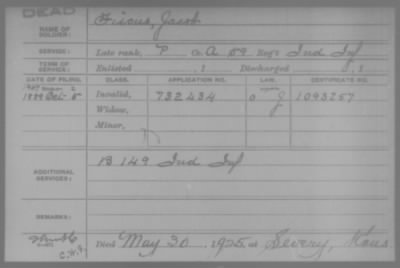 DEAD
NAME OF SOLDIER: Fiscus, Jacob
SERVICE: Late rank, P Co. A 59 Reg't Ind Inf
TERM OF SERVICE: Enlisted , 1 Discharged , 1
DATE OF FILING. CLASS. APPLICATION NO. LAW. CERTIFICATE NO.
1889 Oct 5 Invalid, 732434 G J 1093257
Widow,
Minor,
ADDITIONAL SERVICES: B 149 Ind Inf
REMARKS:
C.W.
Died May 30 1925 at Severy, Kans